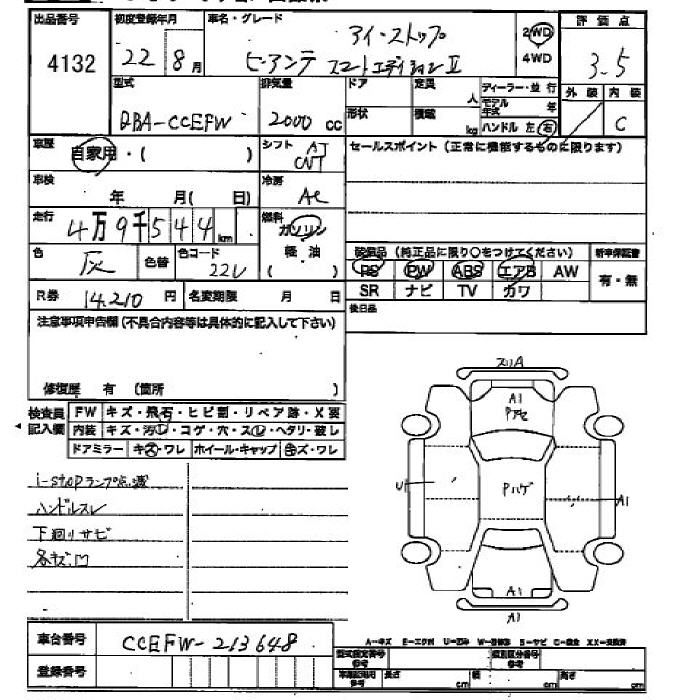 出品番号 4132
初度登録年月 22 8月
車名・グレード アイ・ストップ
ビアンテ スマートエディションⅡ
2WD
4WD
評価点 3.5
外装 内装 C
型式 DBA-CCEFW
排気量 2000 cc
ドア 定員 人
形状 積載 kg
ディーラー・並行
モデル年式 年
ハンドル 左 右
車歴 自家用・( )
シフト AT
CVT
セールスポイント(正常に機能するものに限ります)
車検 年 月( 日)
冷房 AC
走行 4万9千544km
燃料 ガソリン
軽・油
( )
色 灰 色替 色コード 22V
装備品(純正品に限り○をつけてください) 新車保証書
PS PW ABS エアB AW 有・無
SR ナビ TV カワ
R券 14.210円 名変期限 月 日
後日品
注意事項申告欄(不具合内容等は具体的に記入して下さい)
修復歴 有 (箇所 )
検査員記入欄
FW キズ・飛石・ヒビ割・リペア跡・X要
内装 キズ・汚レ・コゲ・穴・スレ・ヘタリ・破レ
ドアミラー キズ・ワレ ホイール・キャップ キズ・ワレ
i-stopランプ点滅
ハンドルスレ
下廻りサビ
各キズ凹
スリA
A1
Pアセ
U1
Pハゲ
A1
A1
A1
車台番号 CCEFW-213648
登録番号
A-キズ E-エクボ U-凹み W-補修跡 S-サビ C-腐食 XX-交換済
型式指定番号 参考
類別区分番号 参考
長さ cm 幅 cm 高さ cm